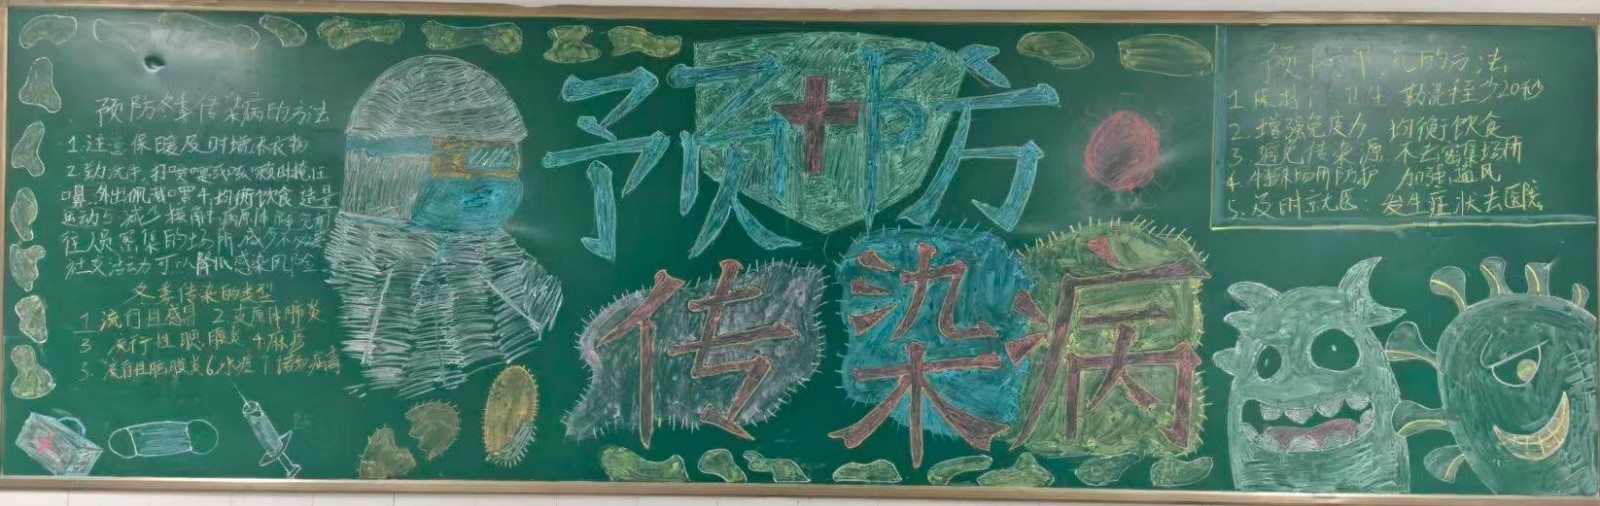 预防冬季传染病的方法
1.注意保暖及时增添衣物
2.勤洗手,打喷嚏或咳嗽时掩住
鼻.外出佩戴口罩4.均衡饮食适量
运动5.减少接触病原体避免前
往人员密集的场所减少不必要
社交活动可以降低感染风险
冬季传染的类型
1.流行性感冒 2.支原体肺炎
3.流行性腮腺炎 4麻疹
5.流行性脑膜炎6水痘7诺如病毒
预防
传染病
预防 的方法
1. 勤洗手至少20秒
2.增强免疫力 均衡饮食
3.避免传染源 不去密集场所
4.特殊场所防护 加强通风
5.及时就医:发生症状去医院